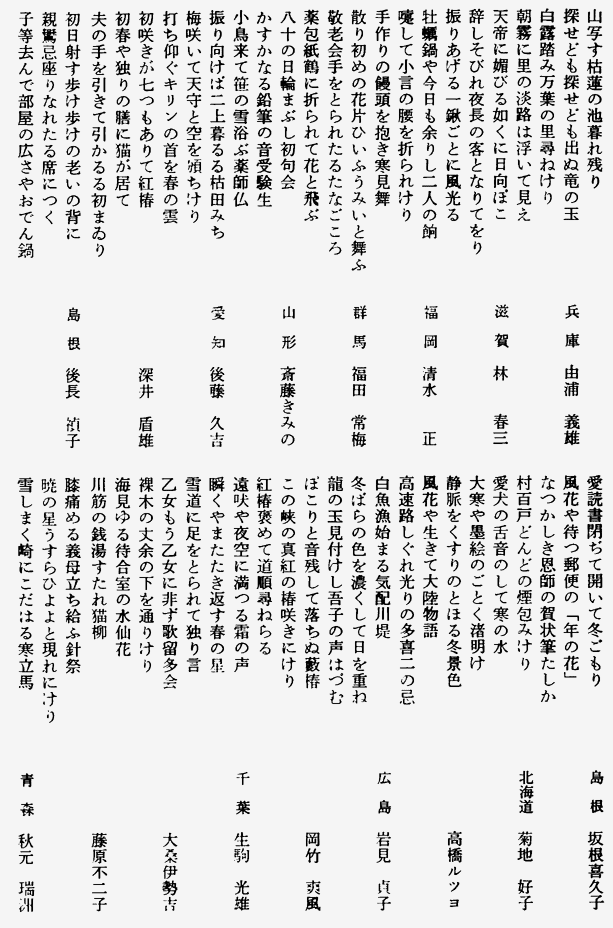 山写す枯蓮の池暮れ残り
探せども探せども出ぬ竜の玉　兵庫　由浦　義雄
白露踏み万葉の里尋ねけり
朝霧に里の淡路は浮いて見え
天帝に媚びる如くに日向ぼこ　滋賀　林　春三
辞しそびれ夜長の客となりてをり
振りあげる一鍬ごとに風光る
牡蠣鍋や今日も余りし二人の餉　福岡　清水　正
嚔して小言の腰を折られけり
手作りの饅頭を抱き寒見舞
散り初めの花片ひいふうみいと舞ふ　群馬　福田　常梅
敬老会手をとられたるたなごころ
薬包紙鶴に折られて花と飛ぶ
八十の日輪まぶし初句会　山形　斎藤きみの
かすかなる鉛筆の音受験生
小鳥来て笹の雪浴ぶ薬師仏
振り向けば二上暮るる枯田みち　愛知　後藤　久吉
梅咲いて天守と空を頒ちけり
打ち仰ぐキリンの首を春の雲
初咲きが七つもありて紅椿　深井　盾雄
初春や独りの膳に猫が居て
夫の手を引きて引かるる初まゐり
初日射す歩け歩けの老いの背に　島根　後長　禎子
親鸞忌座りなれたる席につく
子等去んで部屋の広さやおでん鍋
愛読書閉ぢて開いて冬ごもり　島根　坂根喜久子
風花や待つ郵便の「年の花」
なつかしき恩師の賀状筆たしか
村百戸どんどの煙包みけり　北海道　菊地　好子
愛犬の舌音のして寒の水
大寒や墨絵のごとく渚明け
静脈をくすりのとほる冬景色　高橋ルツヨ
風花や生きて大陸物語
高速路しぐれ光りの多喜二の忌
白魚漁始まる気配川堤　広島　岩見　貞子
冬ばらの色を濃くして日を重ね
龍の玉見付けし吾子の声はづむ
ぽこりと音残して落ちぬ藪椿　岡竹　爽風
この峡の真紅の椿咲きにけり
紅椿褒めて道順尋ねらる
遠吠や夜空に満つる霜の声　千葉　生駒　光雄
瞬くやまたたき返す春の星
雪道に足をとられて独り言
乙女もう乙女に非ず歌留多会　大桑伊勢吉
裸木の丈余の下を通りけり
海見ゆる待合室の水仙花
川筋の銭湯すたれ猫柳　藤原不二子
膝痛める義母立ち給ふ針祭
暁の星うすらひよよと現れにけり
雪しまく崎にこだはる寒立馬　青森　秋元　瑞洲